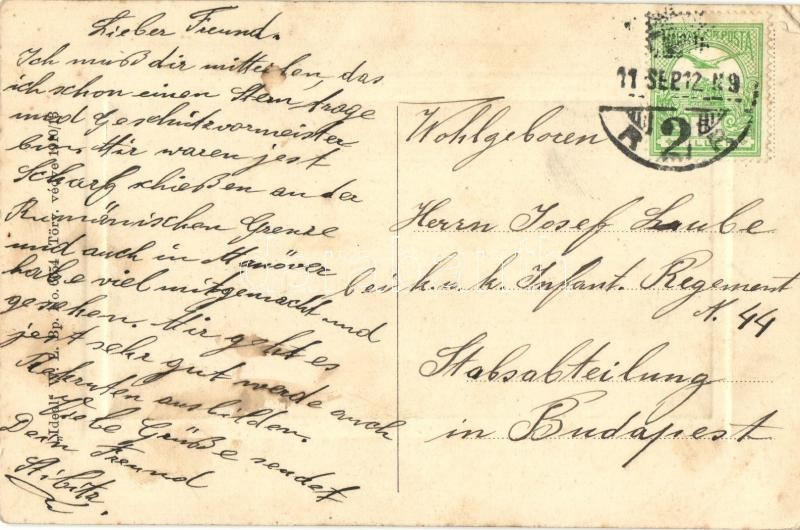 Lieber Freund.
Ich muß dir mitteilen, das
ich schon einen Stern trage
und Geschützvormeister
bin. Wir waren jest
Scharf schießen an der
Rumänischen Grenze
und auch in Manöver
habe viel mitgemacht und
gesehen. Mir geht es
jest sehr gut werde auch
Rekruten ausbilden.
Liebe Grüße sendet
Dein Freund
Wohlgeboren
Herrn Josef Laube
bei k. u. k. Infant. Regement
N. 44
Stabsabteilung
in Budapest
11 SEP 12
2
POSTA
"Ideal" W. L. Bp. No. 654 Törv. védve 1910/3